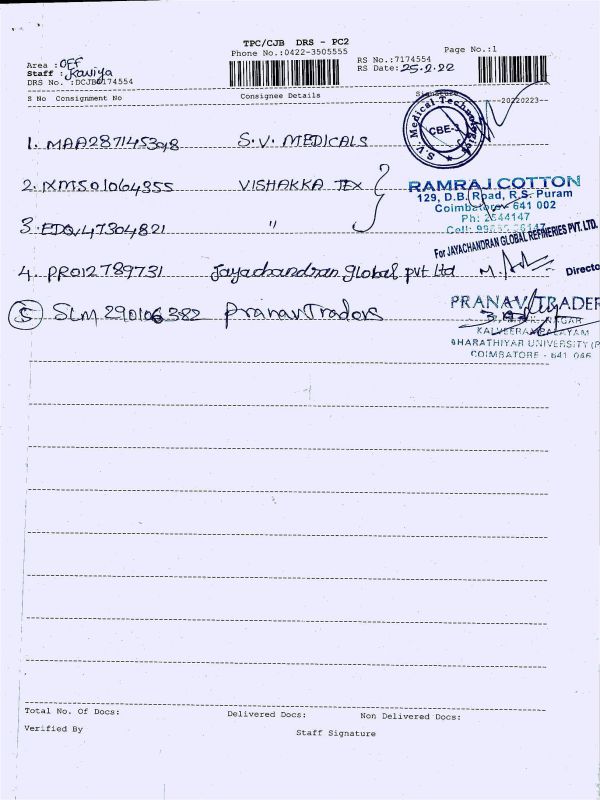 TPC/CJB DRS - PC2
Phone No.:0422-3505555 Page No.:1
Area : OFF
Staff : Kaviya
DRS No. :DCJB0174554
RS No.:7174554
RS Date: 25.2.22
S No Consignment No Consignee Details Signature
--20220223--
1. MAA287145398 S.V. MEDICALS
S.V. Medical Technologies
CBE-3
2. IXM501064355 VISHAKKA TEX
RAMRAJ COTTON
129, D.B. Road, R.S. Puram
Coimbatore - 641 002
Ph: 2544147
3. EDQ147304821 "
For JAYACHANDRAN GLOBAL REFINERIES PVT. LTD.
4. PRO12789731 Jayachandran Global pvt Ltd
Director
5 SLM 290106382 Pranav Traders
PRANAV TRADER
NAGAR
KALVEERAMPALAYAM
BHARATHIYAR UNIVERSITY (P
COIMBATORE - 641 046
Total No. Of Docs: Delivered Docs: Non Delivered Docs:
Verified By Staff Signature